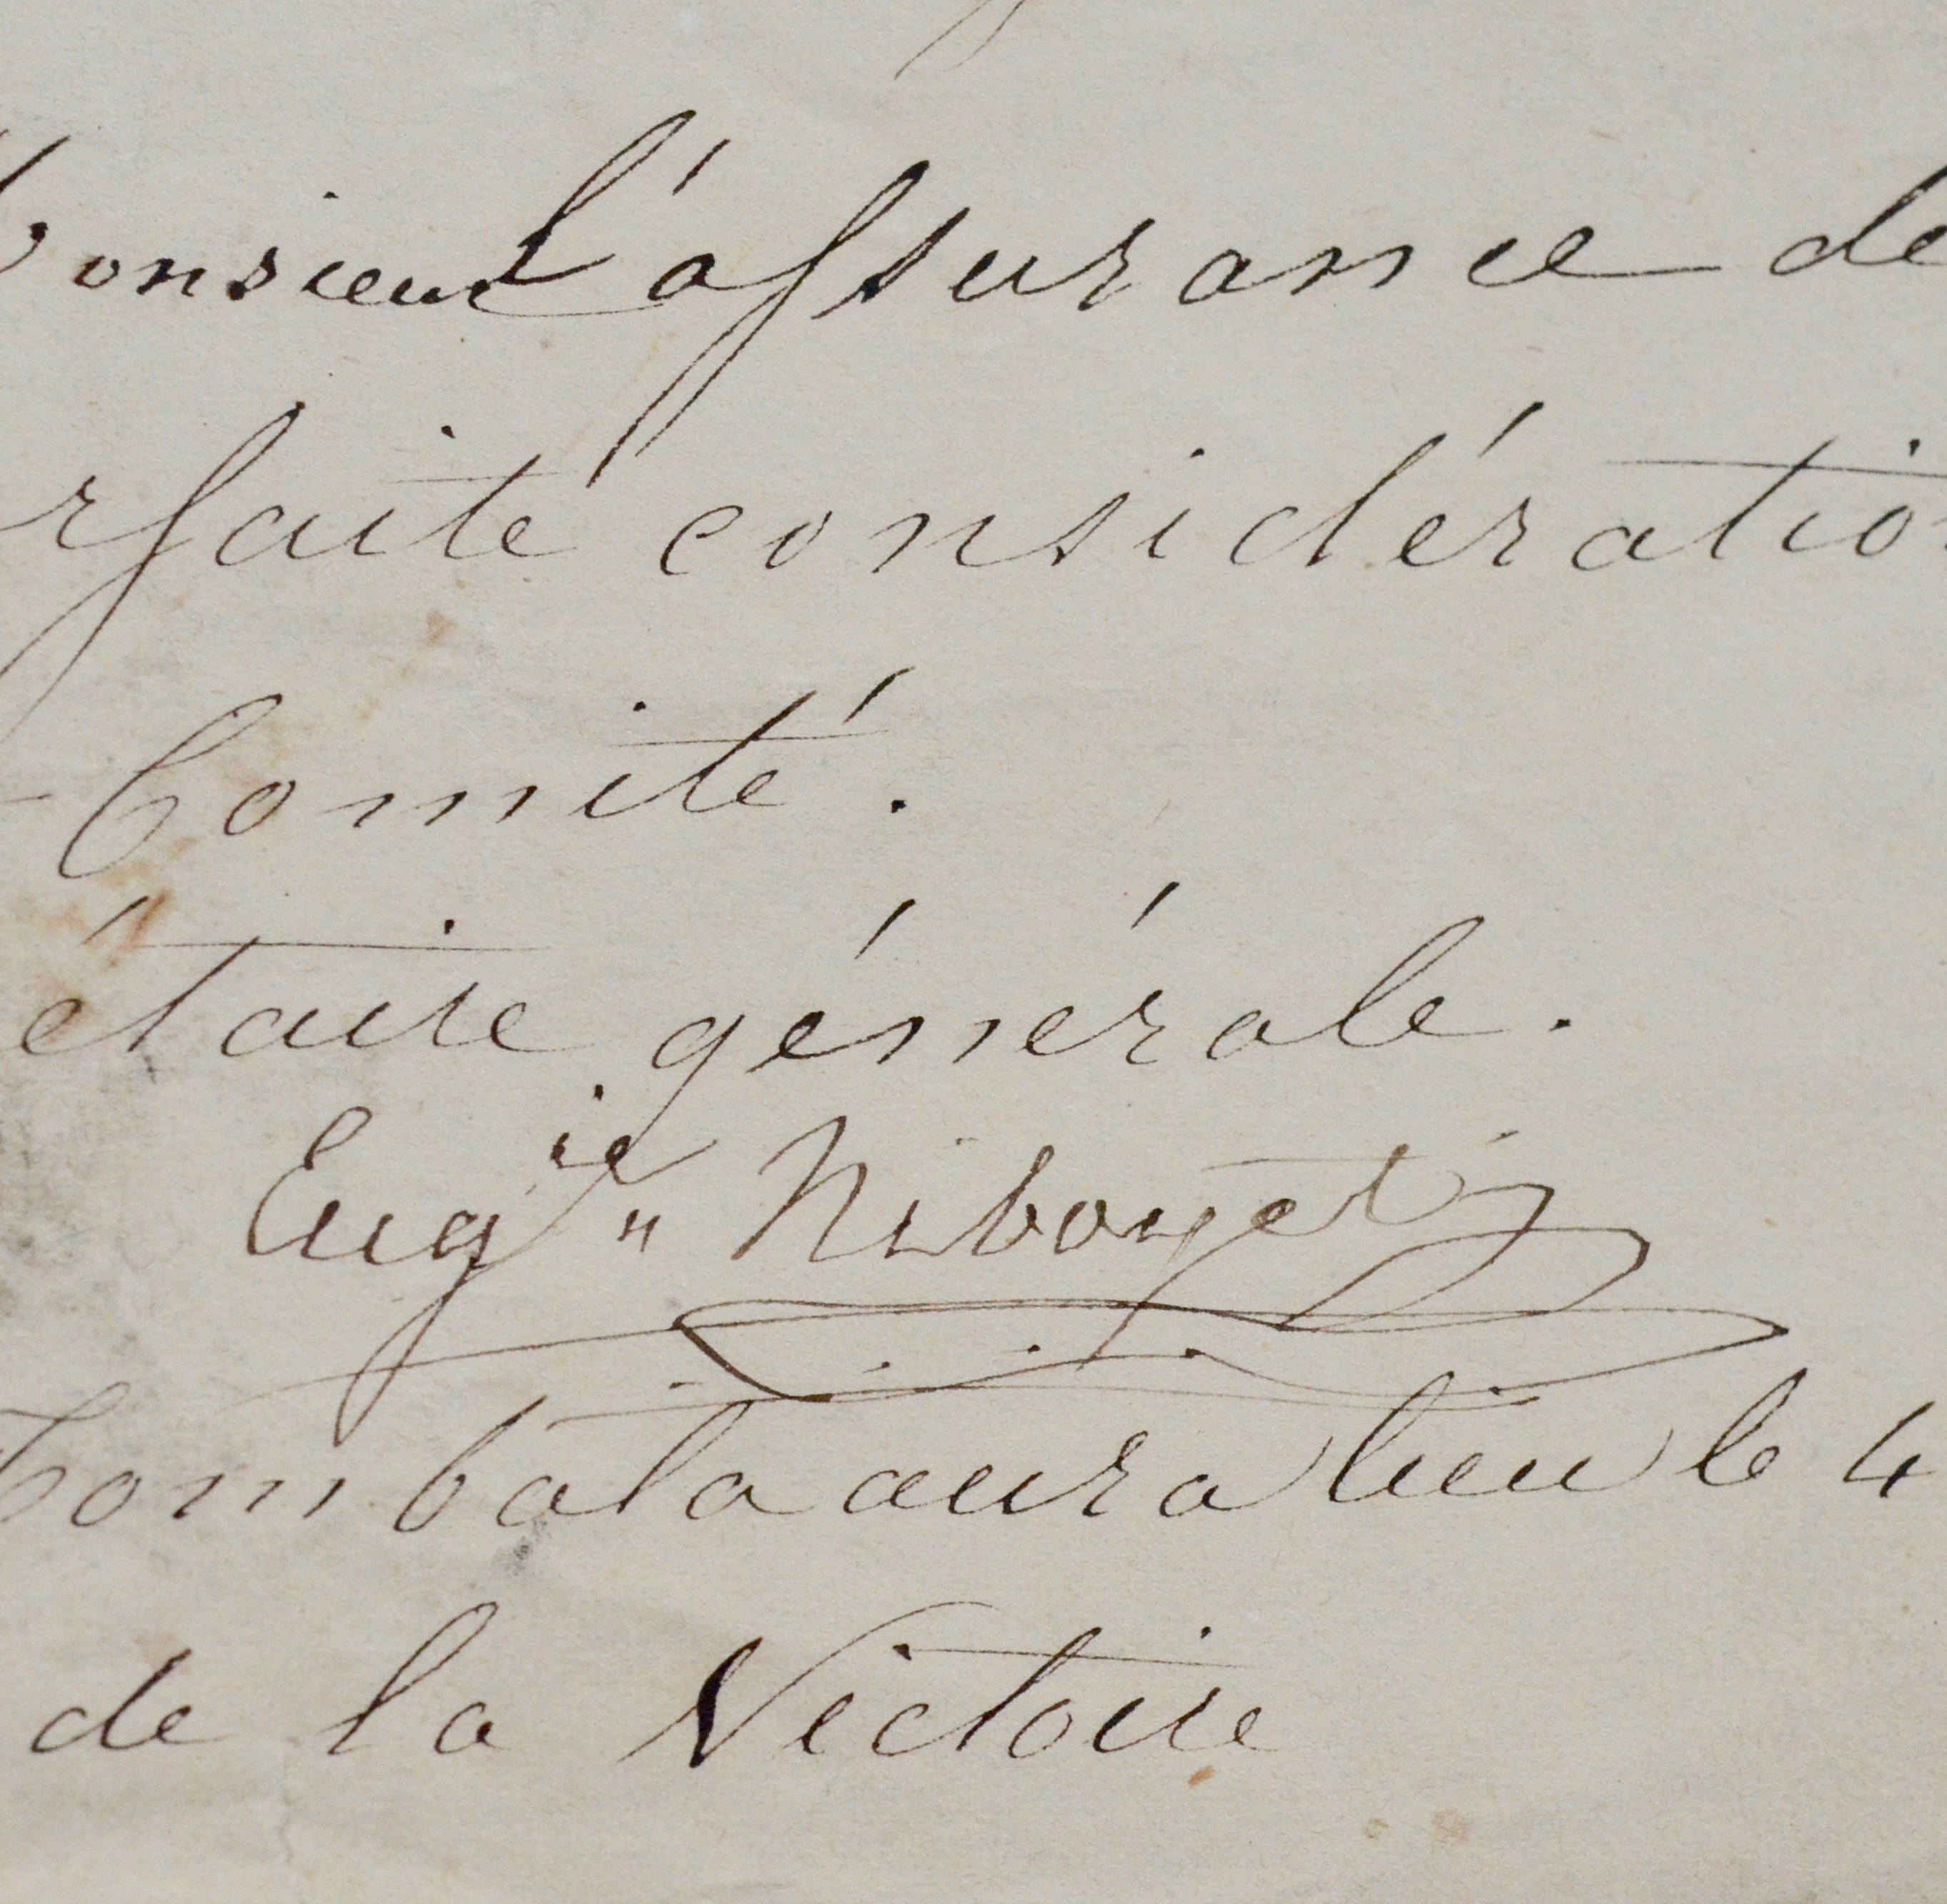 Monsieur l'assurance de
rfaite considération
Comité.
étaire générale.
Eug^ie Niboyet
Tombola aura lieu le 4
de la Victoire